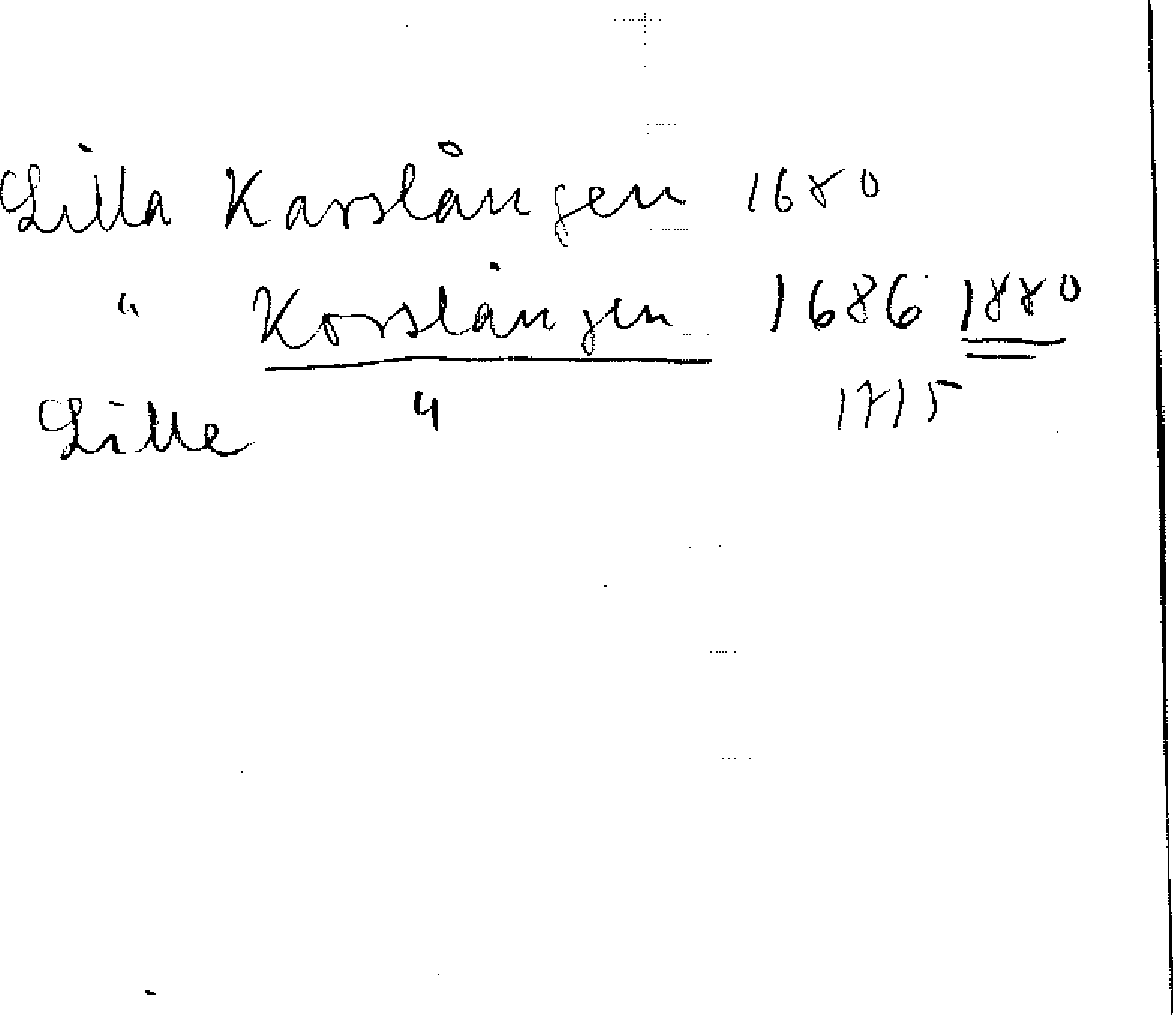 Lilla Karslången 1680
" Korslången 1686 1880
Lille " 1715